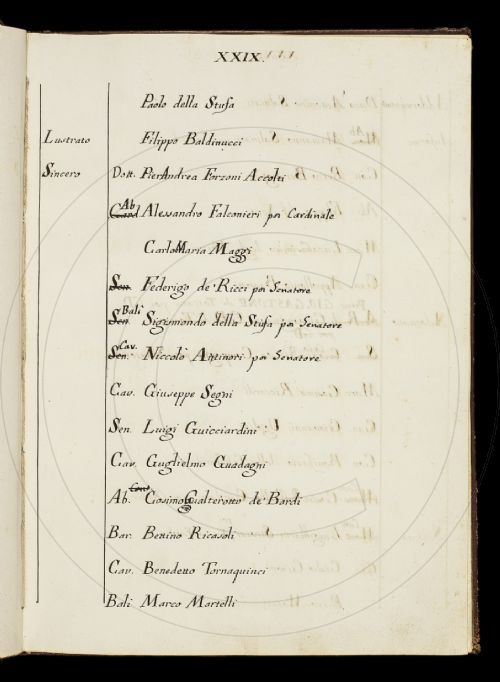 XXIX.
Paolo della Stufa
Lustrato Filippo Baldinucci
Sincero Dott. PierAndrea Forzoni Accolti
Ab Card. Alessandro Falconieri poi Cardinale
CarloMaria Maggi
Sen. Federigo de' Ricci poi Senatore
Balì Sen. Sigismondo della Stufa poi Senatore
Cav. Sen. Niccolò Antinori poi Senatore
Cav. Giuseppe Segni
Sen. Luigi Guicciardini
Cav. Guglielmo Guadagni
Ab. Cosimo Gualterotto de' Bardi
Bar. Bettino Ricasoli
Cav. Benedetto Tornaquinci
Balì Marco Martelli